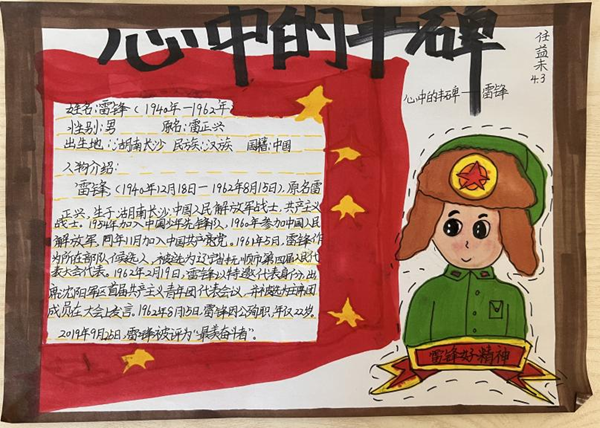 心中的丰碑
任益未
4.3
心中的丰碑——雷锋
姓名:雷锋(1940年—1962年)
性别:男 原名:雷正兴
出生地:湖南长沙 民族:汉族 国籍:中国
人物介绍:
雷锋(1940年12月18日—1962年8月15日),原名雷
正兴,生于湖南长沙,中国人民解放军战士,共产主义
战士。1954年加入中国少年先锋队,1960年参加中国人民
解放军,同年11月加入中国共产党。1961年5月,雷锋作
为所在部队候选人,被选为辽宁省抚顺市第四届人民代
表大会代表。1962年2月19日,雷锋以特邀代表身分,出
席沈阳军区首届共产主义青年团代表会议,并被选为主席团
成员在大会上发言。1962年8月15日,雷锋因公殉职,年仅22岁。
2019年9月25日,雷锋被评为“最美奋斗者”。
雷锋好精神